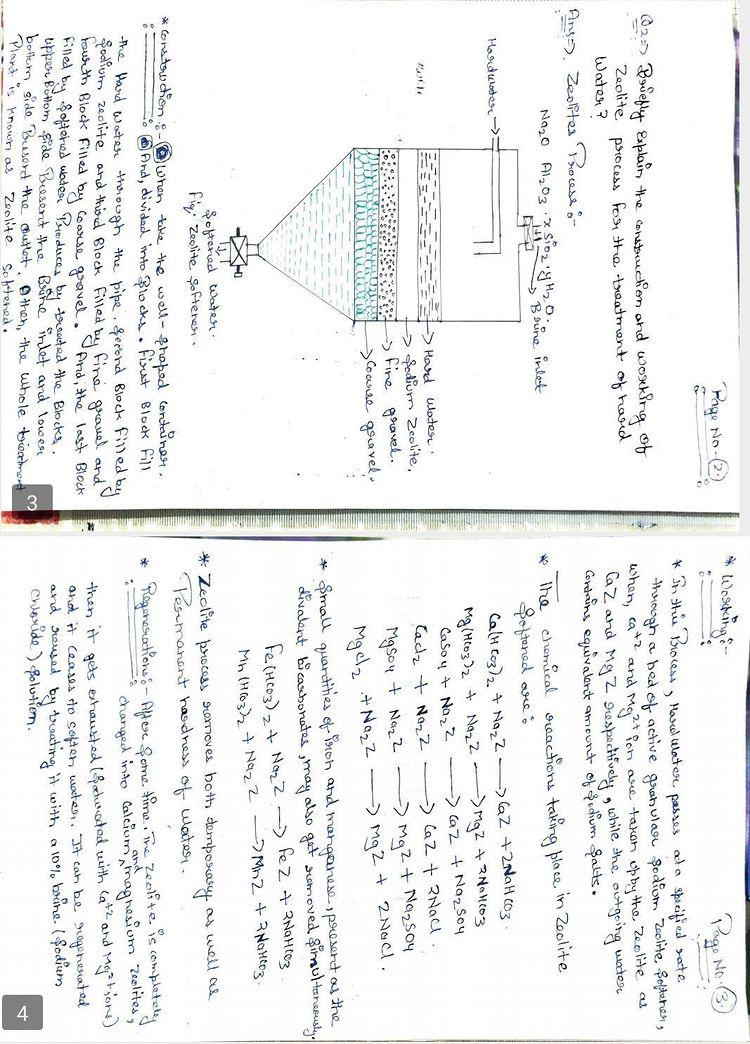 Page No-(2)
Q2=> Briefly Explain the construction and working of
Zeolite process for the treatment of hard
Water?
Ans=>. Zeolites Process:-
Na2O Al2O3 . x SiO2 . yH2O.
Brine inlet
Hardwater
Hard Water.
Sodium Zeolite.
fine gravel.
Coarse gravel.
Softened Water.
Fig: Zeolite Softener.
* Construction:- When take the well-shaped container.
And, divided into Blocks. First Block fill
the Hard Water through the pipe. Second Block filled by
Sodium zeolite and third Block filled by fine gravel and
fourth Block filled by Coarse gravel. And, the last Block
filled by Softened water Produces by treated the Blocks.
upper bottom side Present the Brine inlet and lower
bottom side Present the outlet. Other, the whole treatment
Plant is known as Zeolite Softened.
3
* Working:-
Page No.(3)
* In this Process, Hard Water passes at a specified rate
through a bed of active granular Sodium Zeolite Softener,
when, Ca+2 and Mg2+ ion are taken up by the Zeolite as
CaZ and MgZ respectively, while the outgoing water
Contains equivalent amount of Sodium Salts.
* The chemical reactions taking place in Zeolite
Softened are:
Ca(HCO3)2 + Na2Z → CaZ + 2NaHCO3.
Mg(HCO3)2 + Na2Z → MgZ + 2NaHCO3
CaSO4 + Na2Z → CaZ + Na2SO4
CaCl2 + Na2Z → CaZ + 2NaCl.
MgSO4 + Na2Z → MgZ + Na2SO4
MgCl2 + Na2Z → MgZ + 2NaCl.
* Small quantities of iron and manganese, present as the
divalent bicarbonates, may also get removed Simultaneously.
Fe(HCO3)2 + Na2Z → FeZ + 2NaHCO3
Mn(HCO3)2 + Na2Z → MnZ + 2NaHCO3.
* Zeolite process removes both temporary as well as
Permanent hardness of Water.
* Regenerations:- After Some time. The Zeolite is completely
changed into Calcium and magnesium Zeolites,
then it gets exhausted (Saturated with Ca+2 and Mg2+ ions)
and it ceases to soften water. It can be regenerated
and reused by treating it with a 10% brine (Sodium
Chloride) Solution.
4